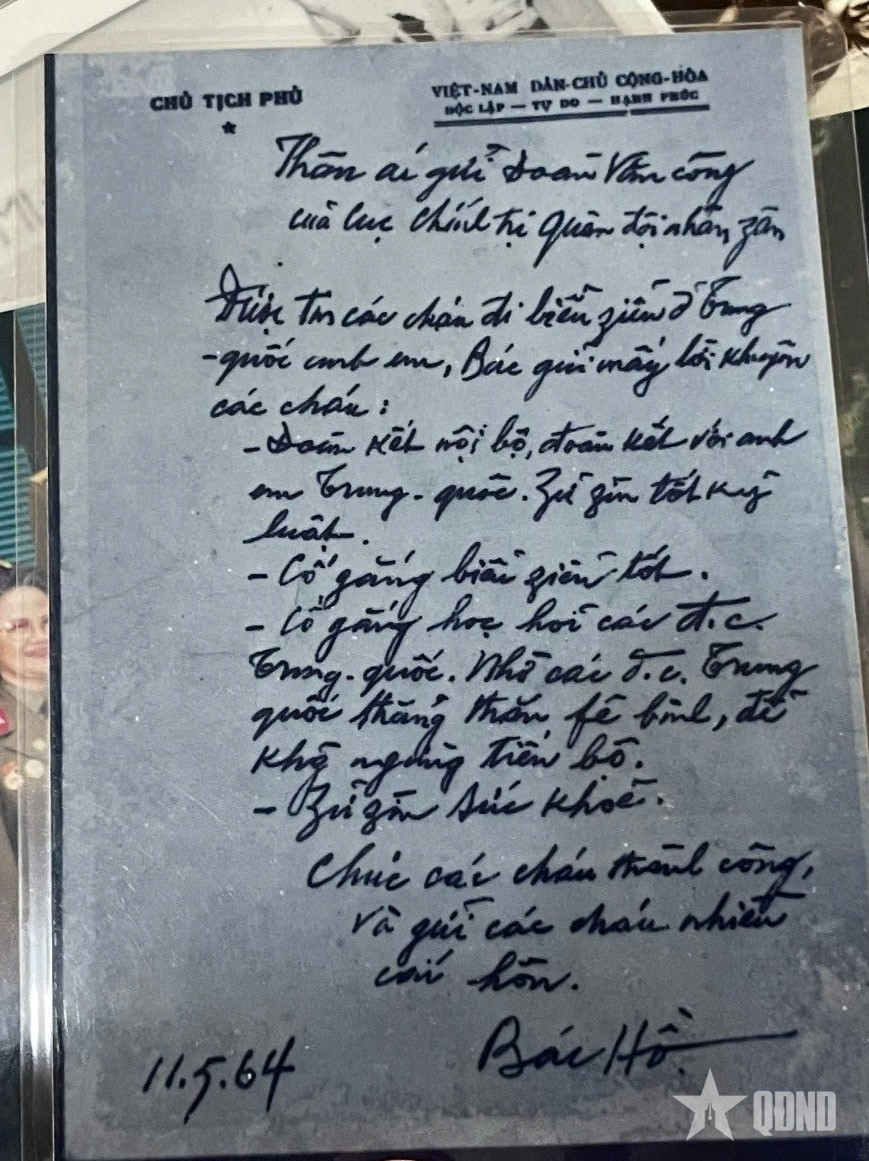 CHỦ TỊCH PHỦ
VIỆT-NAM DÂN-CHỦ CỘNG-HÒA
ĐỘC LẬP — TỰ DO — HẠNH PHÚC
Thân ái gửi Đoàn Văn công
của cục chính trị Quân đội nhân zân
Được tin các cháu đi biểu ziễn ở Trung
-quốc anh em, Bác gửi mấy lời khuyên
các cháu :
- Đoàn kết nội bộ, đoàn kết với anh
em Trung-quốc. Zữ zìn tốt kỷ
luật.
- Cố gắng biểu ziễn tốt.
- Cố gắng học hỏi các đ.c.
Trung-quốc. Nhờ các đ.c. Trung
quốc thẳng thắn fê bình, để
khg ngừng tiến bộ.
- Zữ zìn sức khoẻ.
Chúc các cháu thành công,
và gửi các cháu nhiều
cái hôn.
Bác Hồ
11.5.64
QĐND